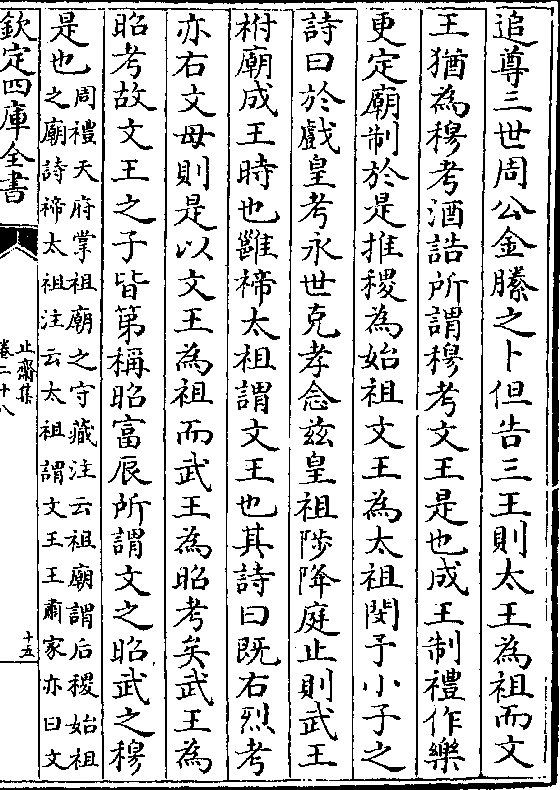 追尊三世周公金縢之卜但告三王則太王為祖而文
王猶為穆考酒誥所謂穆考文王是也成王制禮作樂
更定廟制於是推稷為始祖文王為太祖閔予小子之
詩曰於戲皇考永世克孝念茲皇祖陟降庭止則武王
祔廟成王時也雝禘太祖謂文王也其詩曰既右烈考
亦右文母則是以文王為祖而武王為昭考矣武王為
昭考故文王之子皆第稱昭富辰所謂文之昭武之穆
是也周禮天府掌祖廟之守藏注云祖廟謂后稷始祖
之廟詩禘太祖注云太祖謂文王王肅家亦曰文
欽定四庫全書
止齋集
卷二十八
十五